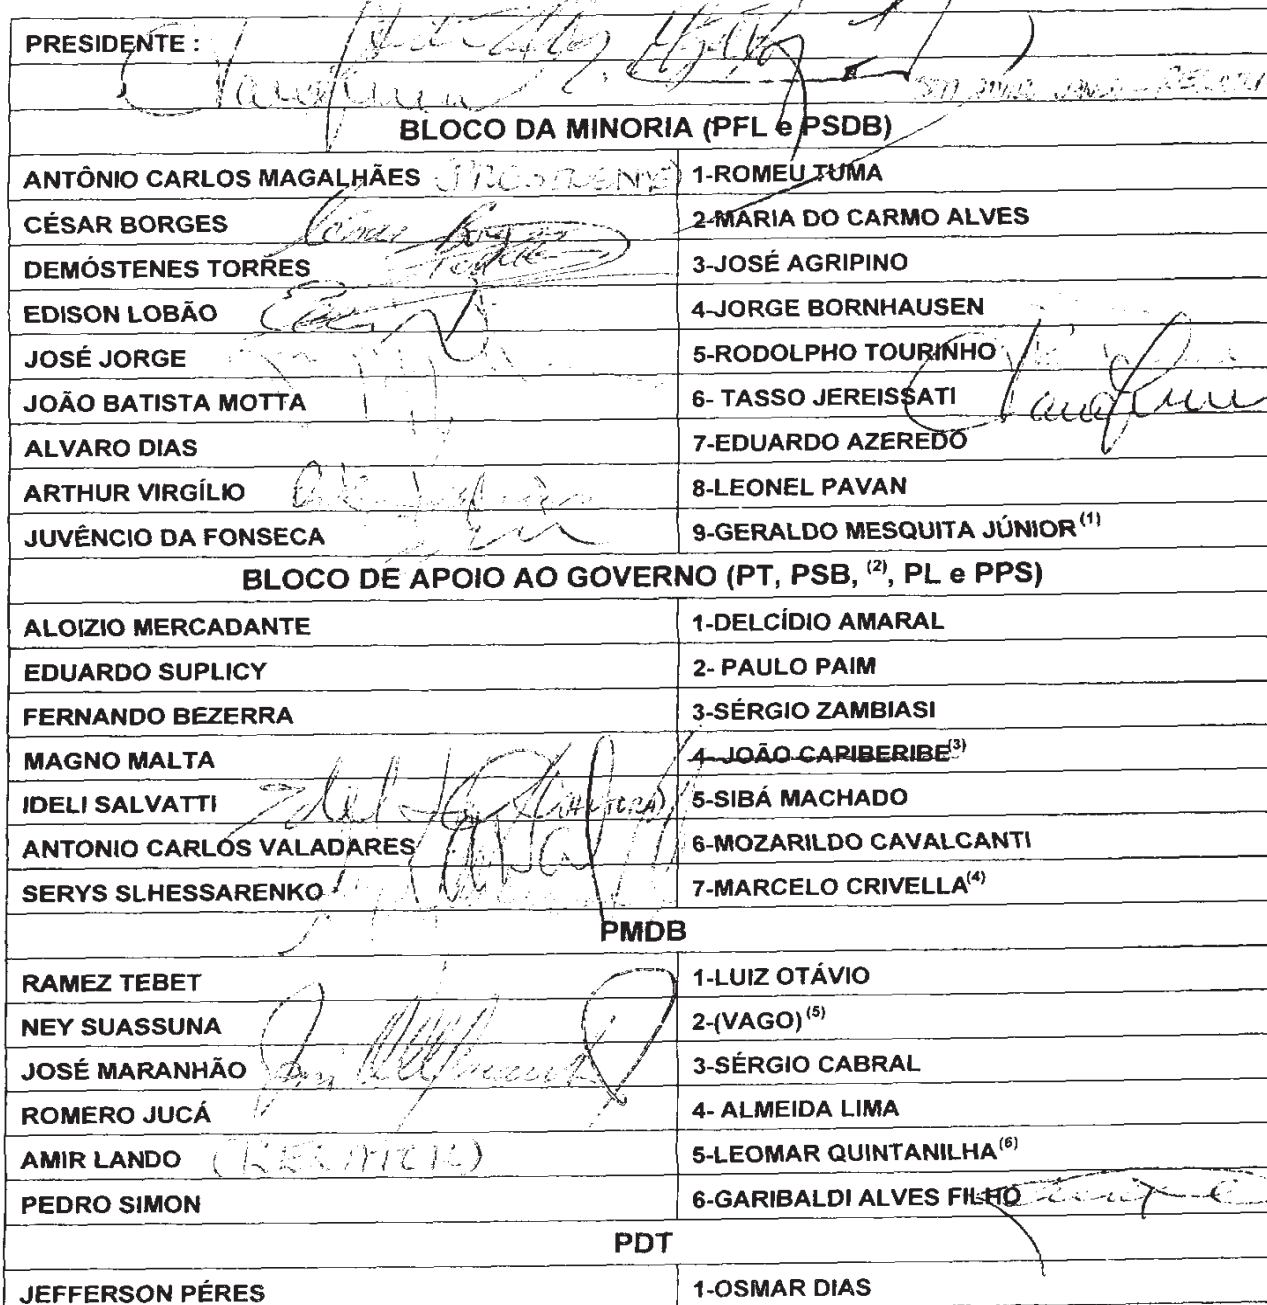 PRESIDENTE :
BLOCO DA MINORIA (PFL e PSDB)
ANTÔNIO CARLOS MAGALHÃES (PRESIDENTE) 1-ROMEU TUMA
CÉSAR BORGES César Borges 2-MARIA DO CARMO ALVES
DEMÓSTENES TORRES 3-JOSÉ AGRIPINO
EDISON LOBÃO 4-JORGE BORNHAUSEN
JOSÉ JORGE 5-RODOLPHO TOURINHO
JOÃO BATISTA MOTTA 6- TASSO JEREISSATI
ALVARO DIAS 7-EDUARDO AZEREDO
ARTHUR VIRGÍLIO 8-LEONEL PAVAN
JUVÊNCIO DA FONSECA 9-GERALDO MESQUITA JÚNIOR(1)
BLOCO DE APOIO AO GOVERNO (PT, PSB, (2), PL e PPS)
ALOIZIO MERCADANTE 1-DELCÍDIO AMARAL
EDUARDO SUPLICY 2- PAULO PAIM
FERNANDO BEZERRA 3-SÉRGIO ZAMBIASI
MAGNO MALTA 4- JOÃO CAPIBERIBE(3)
IDELI SALVATTI 5-SIBÁ MACHADO
ANTONIO CARLOS VALADARES 6-MOZARILDO CAVALCANTI
SERYS SLHESSARENKO 7-MARCELO CRIVELLA(4)
PMDB
RAMEZ TEBET 1-LUIZ OTÁVIO
NEY SUASSUNA 2-(VAGO)(5)
JOSÉ MARANHÃO 3-SÉRGIO CABRAL
ROMERO JUCÁ 4- ALMEIDA LIMA
AMIR LANDO (RELATOR) 5-LEOMAR QUINTANILHA(6)
PEDRO SIMON 6-GARIBALDI ALVES FILHO
PDT
JEFFERSON PÉRES 1-OSMAR DIAS